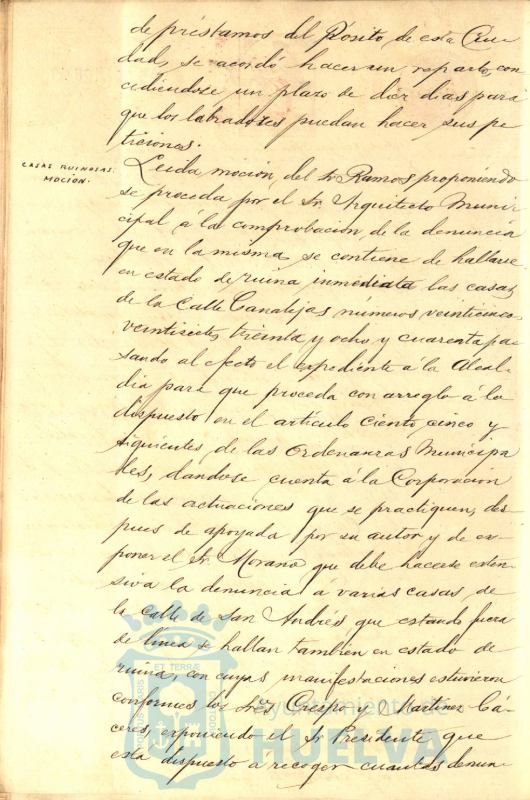 de préstamos del Pósito de esta Ciu
dad, se acordó hacer un reparto, con
cediendose un plazo de diez dias para
que los labradores puedan hacer sus pe
ticiones.
CASAS RUINOSAS:
MOCIÓN.
Leida moción del Sr Ramos proponiendo
se proceda por el Sr. Arquitecto Muni
cipal á la comprobación de la denuncia
que en la misma se contiene de hallarse
en estado de ruina inmediata las casas
de la Calle Canalejas números veinticinco
veintisiete, treinta y ocho y cuarenta pa
sando al efecto el expediente á la Alcal
dia para que proceda con arreglo á lo
dispuesto en el artículo ciento cinco y
siguientes de las Ordenanzas Municipa
les, dandose cuenta á la Corporación
de las actuaciones que se practiquen, des
pues de apoyada por su autor y de ex
poner el Sr. Morano que debe hacerse exten
siva la denuncia á varias casas de
la calle de San Andrés que estando fuera
de linea se hallan tambien en estado de
ruina, con cuyas manifestaciones estuvieron
conformes los Sres Crespo y Martinez Cá
ceres, exponiendo el Sr Presidente que
está dispuesto a recoger cuantas denun
Ayuntamiento de
HUELVA